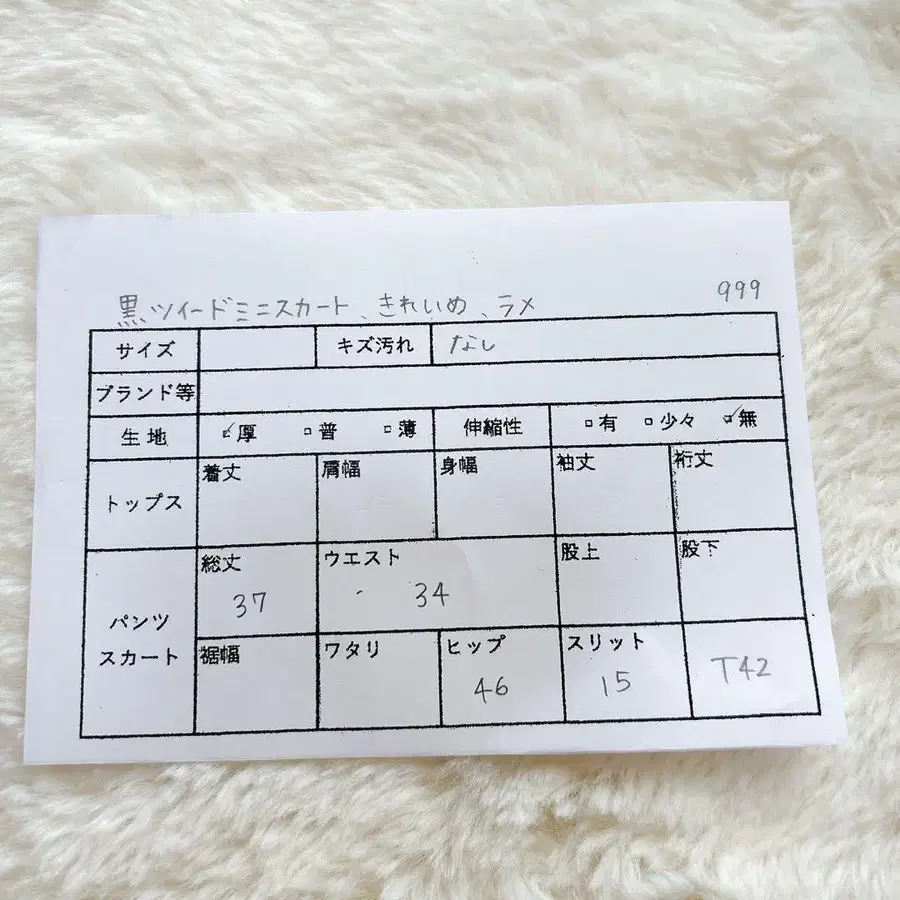 黒、ツイードミニスカート、きれいめ、ラメ 999
サイズ キズ汚れ なし
ブランド等
生地 ☑厚 □普 □薄 伸縮性 □有 □少々 ☑無
トップス 着丈 肩幅 身幅 袖丈 裄丈
パンツ スカート
総丈 ウエスト 股上 股下
37 34
裾幅 ワタリ ヒップ スリット
46 15 T42